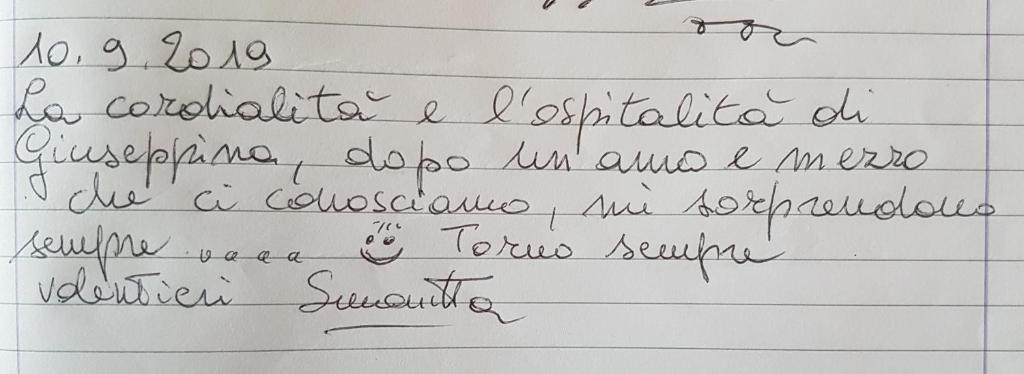 10.9.2019
La cordialità e l'ospitalità di
Giuseppina, dopo un anno e mezzo
che ci conosciamo, mi sorprendono
sempre .... Torno sempre
volentieri Simonetta